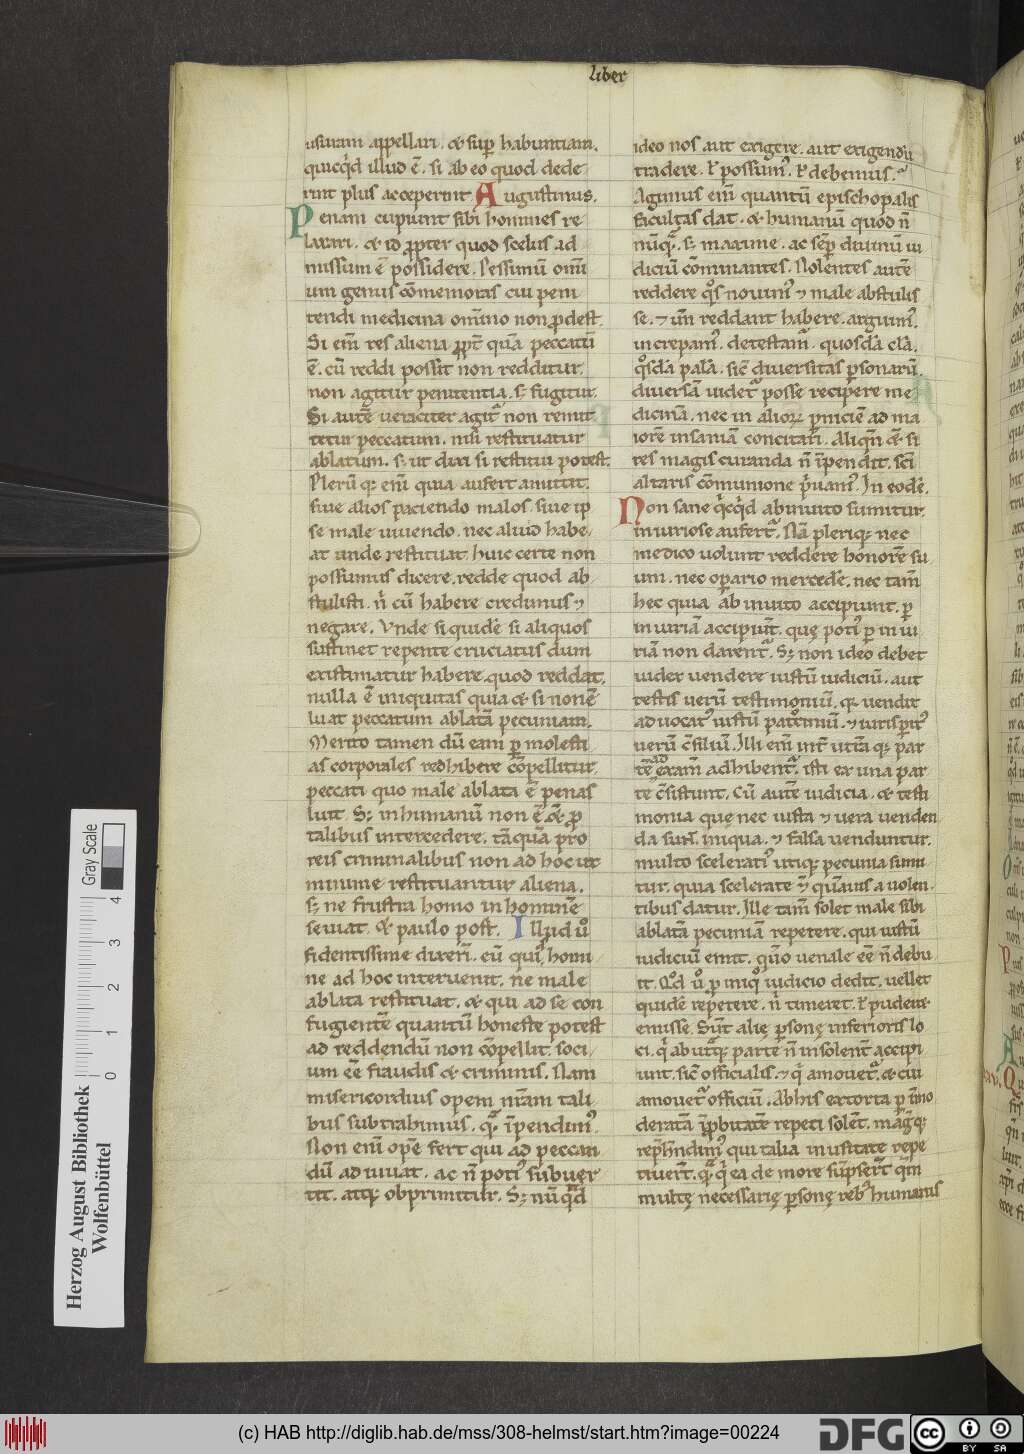 liber
usuram appellari. & sup habuntiam.
quicqd illud ē. si ab eo quod dede
runt plus acceperint Augustinus.
Penam cupiunt sibi homines re
laxari. & id ꝓpter quod scelus ad
missum ē possidere. Pessimū omi
um genus cōmemoras cui peni
tendi medicina omīno non ꝓdest.
Si eim res aliena ꝓpt quā peccatū
ē. cū reddi possit non redditur.
non agitur penitentia. s; fugitur.
Si autē veraciter agit non remit
tetur peccatum. nisi restituatur
ablatum. s; ut dixi si restitui potest.
Plerūq; eim quia aufert amittit.
siue alios paciendo malos. siue ip
se male uiuendo. nec aliud habe
at unde restituat. huic certe non
possumus dicere. redde quod ab
stulisti. n cū habere credimus ⁊
negare. Vnde siquidē si aliquos
sustinet repente cruciatus dum
existimatur habere quod reddat.
nulla ē iniquitas quia & si non ē
luat peccatum ablatā pecuniam.
Merito tamen dū eam ꝑ molesti
as corporales redhibere cōpellitur
peccati quo male ablata ē penas
luit. S; inhumanū non ē & ꝓ
talibus intercedere. tāquā pro
reis criminalibus non ad hoc ut
minime restituantur aliena.
s; ne frustra homo in hominē
seuiat. & paulo post. Illud u
fidentissime dixeri. eū qui homi
ne ad hoc interuenit. ne male
ablata restituat. & qui ad se con
fugientē quantū honeste potest
ad reddendū non cōpellit. soci
um eē fraudis & criminis. Nam
misericordius opem nrām tali
bus subtrahimus. q̄ īpendim
Non eim opē fert qui ad peccan
dū adiuuat. ac n̄ poti subuer
tit. atq; obprimitur. S; nūqd
ideo nos aut exigere. aut exigendū
tradere. ł possum. ł debemus.
Agimus eim quantū epischopalis
facultas dat. & humanū quod n̄
nūq. s; maxime. ac sep diuinū iu
diciū cōminantes. Nolentes autē
reddere qs nouim ⁊ male abstulis
se. ⁊ un reddant habere. arguim.
increpam. detestam. quosdā clā.
qsdā palā. sic diuersitas psonarū.
diuersā uidet posse recipere me
dicinā. nec in alioꝝ pniciē ad ma
iorē insaniā concitari. Aliqn̄ & si
res magis curanda n̄ īpendit. sci
altaris cōmunione priuam. In eodē.
Non sane qcqd ab inuito sumitur.
iniuriose aufert. Nā pleriq; nec
medico uolunt reddere honorē su
um. nec opario mercedē. nec tam
hec quia ab inuito accipiunt. ꝑ
iniuriā accipiut. quę poti ꝑ iniu
riā non darent. S; non ideo debet
iudex uendere iustū iudiciū. aut
testis uerū testimoniū. q; uendit
aduocat iustū patciniū. ⁊ iurispit
uerū csiliū. Illi eim int utrā q; par
tē exam adhibent. isti ex una par
te csistunt. Cū autē iudicia. & testi
monia quę nec iusta & uera uenden
da sunt. iniqua. ⁊ falsa uenduntur.
multo scelerati utiq; pecunia sumi
tur. quia scelerate & quāuis a uolen
tibus datur. Ille tam solet male sibi
ablatā pecuniā repetere. qui iustū
iudiciū emit. quo uenale eē n̄ debu
it. Qd u ꝑ iniq iudicio dedit. uellet
quidē repetere. n timeret. ł puderet
emisse. Sunt alię psonę inferioris lo
ci. q ab utq; parte n̄ insolent accipi
unt. sic officialis. ⁊ q amouet. & cui
amouet officiū. Ab his extorta ꝑ imo
deratā īprobitatē repeti solent.
rephendim qui talia inusitate repe
tiuert. q q ea de more supsert qm
multę necessarię psonę reb humanis
Gray Scale
0 1 2 3 4
Herzog August Bibliothek
Wolfenbüttel
(c) HAB http://diglib.hab.de/mss/308-helmst/start.htm?image=00224
DFG
cc
BY SA